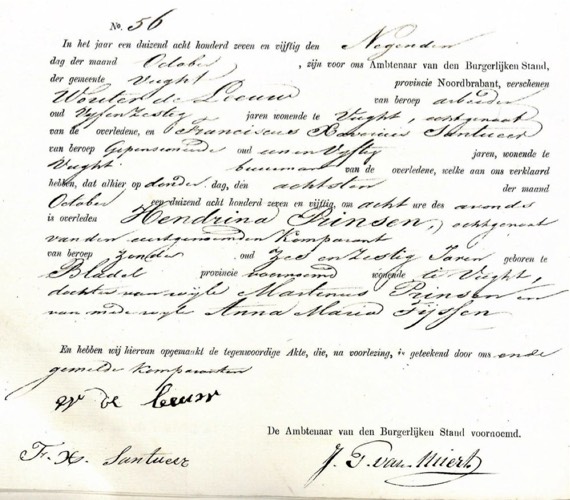 No. 56
In het jaar een duizend acht honderd zeven en vijftig den Negenden
dag der maand October, zijn voor ons Ambtenaar van den Burgerlijken Stand,
der gemeente Vught provincie Noordbrabant, verschenen
Wouter de Leeuw van beroep arbeider
oud Vyfenzestig jaren wonende te Vught, echtgenoot
van de overledene, en Franciscus Xaverius Santucer
van beroep Gepensioneerde oud eenenvyftig jaren, wonende te
Vught buurman van de overledene, welke aan ons verklaard
hebben, dat alhier op donderdag, den achtsten der maand
October een duizend acht honderd zeven en vijftig, om acht ure des avonds
is overleden Hendrina Prinsen, echtgenoot
van den eerstgenoemden Komparant
van beroep zonder oud Zes en zestig Jaren geboren te
Bladel provincie voornoemd wonende te Vught,
dochter van wyle Martinus Prinsen en
van mede wyle Anna Maria Fyssen
En hebben wij hiervan opgemaakt de tegenwoordige Akte, die, na voorlezing, is geteekend door ons ende
gemelde Komparanten
W de Leeuw
De Ambtenaar van den Burgerlijken Stand voornoemd.
Fr. X. Santucer
J. P. van Miert